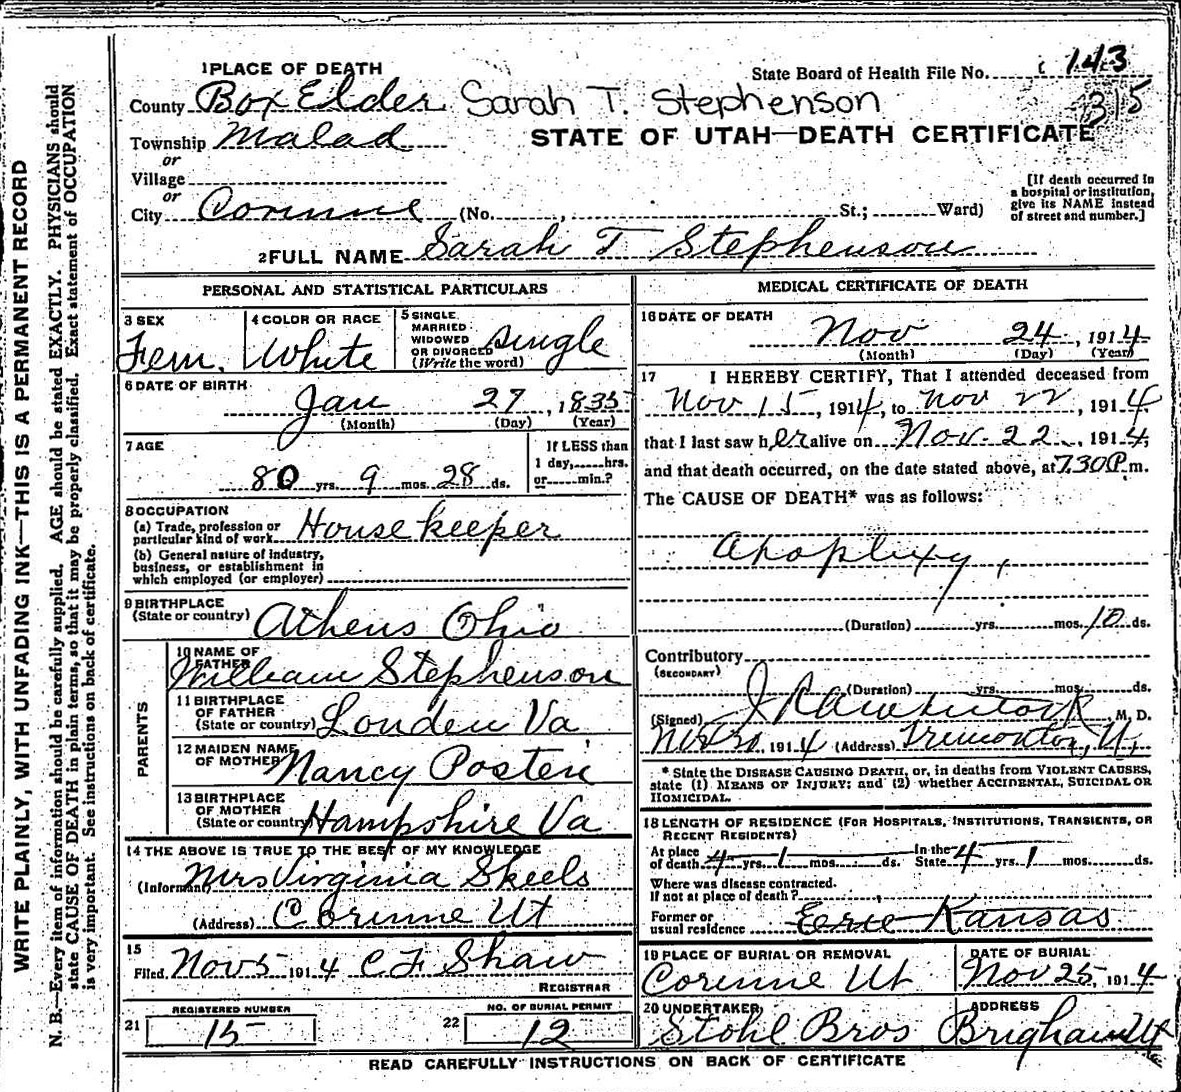 WRITE PLAINLY, WITH UNFADING INK—THIS IS A PERMANENT RECORD
N. B.—Every item of information should be carefully supplied. AGE should be stated EXACTLY. PHYSICIANS should
state CAUSE OF DEATH in plain terms, so that it may be properly classified. Exact statement of OCCUPATION
is very important. See instructions on back of certificate.
1 PLACE OF DEATH
State Board of Health File No. 143
315
County Box Elder Sarah T. Stephenson
Township Malad
STATE OF UTAH—DEATH CERTIFICATE
or
Village
or
City Corinne (No. , St.; Ward)
[If death occurred in
a hospital or institution,
give its NAME instead
of street and number.]
2 FULL NAME Sarah T Stephenson
PERSONAL AND STATISTICAL PARTICULARS
3 SEX
Fem.
4 COLOR OR RACE
White
5 SINGLE
MARRIED
WIDOWED
OR DIVORCED
(Write the word)
single
6 DATE OF BIRTH
Jan 27, 1835
(Month) (Day) (Year)
7 AGE
80 yrs. 9 mos. 28 ds.
If LESS than
1 day,......hrs.
or......min.?
8 OCCUPATION
(a) Trade, profession or
particular kind of work House keeper
(b) General nature of industry,
business, or establishment in
which employed (or employer)
9 BIRTHPLACE
(State or country) Athens Ohio
PARENTS
10 NAME OF
FATHER
William Stephenson
11 BIRTHPLACE
OF FATHER
(State or country) Louden Va
12 MAIDEN NAME
OF MOTHER Nancy Posten
13 BIRTHPLACE
OF MOTHER
(State or country) Hampshire Va
14 THE ABOVE IS TRUE TO THE BEST OF MY KNOWLEDGE
(Informant) Mrs Virginia Skeels
(Address) Corinne Ut
15
Filed Nov 5 1914 C F Shaw
REGISTRAR
REGISTERED NUMBER
21 15
NO. OF BURIAL PERMIT
22 12
MEDICAL CERTIFICATE OF DEATH
16 DATE OF DEATH
Nov 24, 1914
(Month) (Day) (Year)
17 I HEREBY CERTIFY, That I attended deceased from
Nov 15, 1914, to Nov 22, 1914
that I last saw her alive on Nov. 22, 1914;
and that death occurred, on the date stated above, at 7.30 P.m.
The CAUSE OF DEATH* was as follows:
Apoplexy,
(Duration) yrs. mos. 10 ds.
Contributory
(SECONDARY)
(Duration) yrs. mos. ds.
(Signed) M. D.
Nov 30 1914 (Address) Tremonton, U.
* State the DISEASE CAUSING DEATH, or, in deaths from VIOLENT CAUSES,
state (1) MEANS OF INJURY; and (2) whether ACCIDENTAL, SUICIDAL OR
HOMICIDAL.
18 LENGTH OF RESIDENCE (FOR HOSPITALS, INSTITUTIONS, TRANSIENTS, OR
RECENT RESIDENTS)
At place
of death 4 yrs. 1 mos. ds. In the
State 4 yrs. 1 mos. ds.
Where was disease contracted.
If not at place of death?
Former or
usual residence Erie Kansas
19 PLACE OF BURIAL OR REMOVAL
Corinne Ut
DATE OF BURIAL
Nov 25, 1914
20 UNDERTAKER
Stohl Bros
ADDRESS
Brigham Ut
READ CAREFULLY INSTRUCTIONS ON BACK OF CERTIFICATE